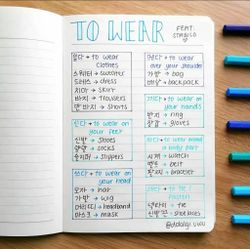 TO WEAR
FEAT.
입다 → to wear
clothes
스웨터 → sweater
드레스 → dress
치마 → skirt
바지 → trousers
반바지 → shorts
신다 → to wear on
your feet
신발 → shoes
양말 → socks
슬리퍼 → slippers
쓰다 → to wear
on your head
모자 → hat
가발 → wig
머리띠 → headband
마스크 → mask
to wear
over your shoulder
가방 → bag
배낭 → backpack
to wear on
your hands
반지 → ring
장갑 → gloves
to wear around
a body part
시계 → watch
벨트 → belt
팔찌 → bracelet
to tie /
fasten
넥타이 → tie
신발끈 → shoelaces